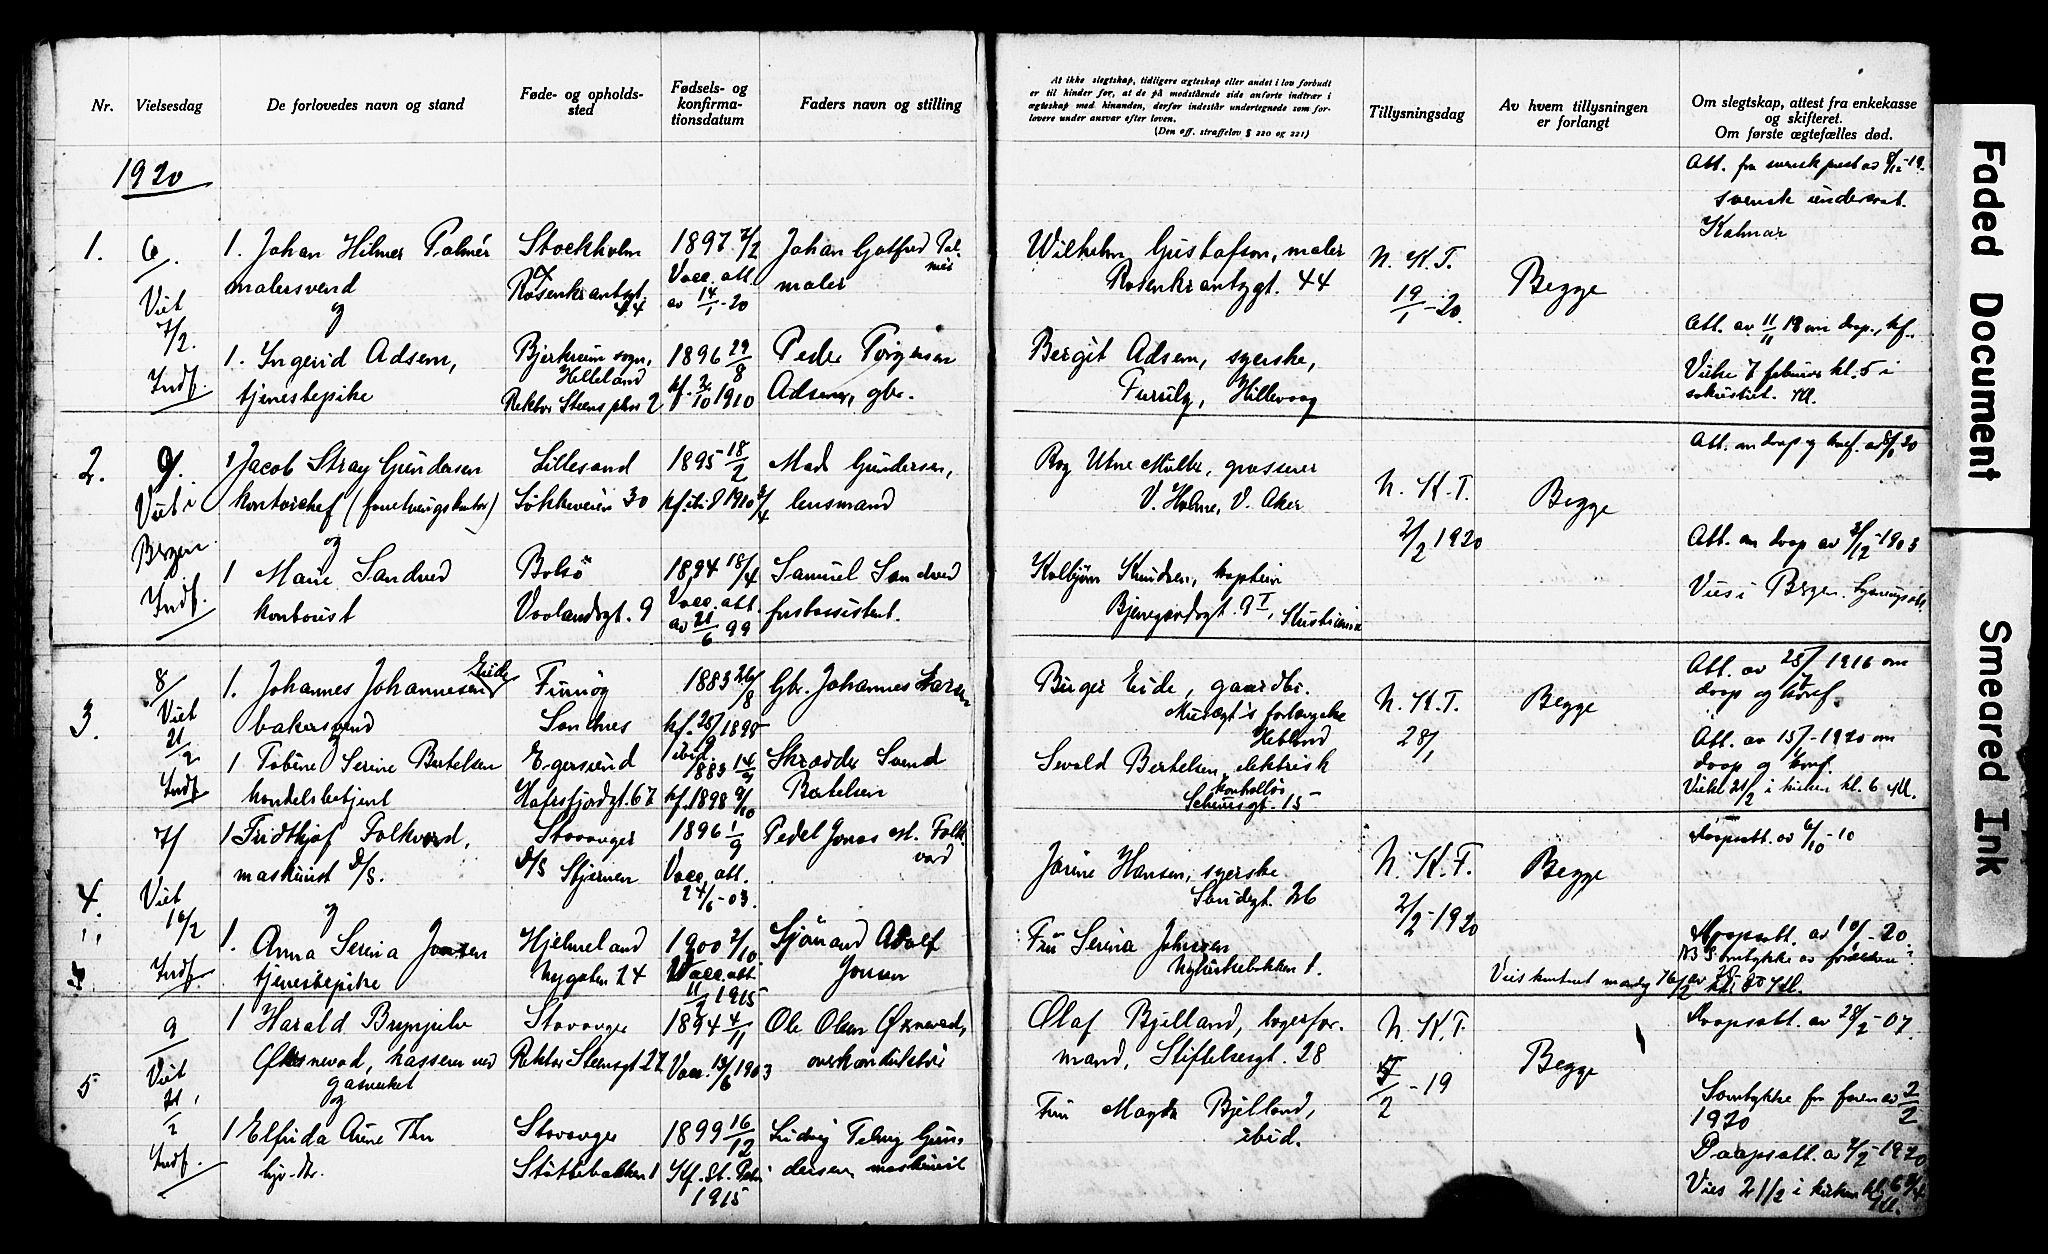 Nr.
Vielsesdag
De forlovedes navn og stand
Føde- og opholds-
sted
Fødsels- og
konfirma-
tionsdatum
Faders navn og stilling
At ikke slegtskap, tidligere ægteskap eller andet i lov forbudt
er til hinder for, at de på modstående side anførte indtrær i
ægteskap med hinanden, derfor indestår undertegnede som for-
lovere under ansvar efter loven.
(Den off. straffelov § 220 og 221)
Tillysningsdag
Av hvem tillysningen
er forlangt
Om slegtskap, attest fra enkekasse
og skifteret.
Om første ægtefælles død.
1920
1.
6/.
Viet
7/2.
Indf.
1. Johan Hilmer Palmér
malersvend
og
1. Ingerid Adsem,
tjenestepike
Stockholm
Rosenkrantzgt.
44
Bjerkreim sogn,
Helleland
Rektor Steens plas 2
1897 7/2
Vacc. att.
av 14/1-20
1896 29/8
kf. 2/10 1910
Johan Gotfred Pal-
mér
maler
Peder Torgersen
Adsem, gbr.
Wilhelm Gustafson, maler
Rosenkrantzgt. 44
Bergit Adsem, syerske,
Furuly, Hillevaag
N. K. T.
19/1-20.
Begge
Att. fra svensk prest av 8/12-19.
svensk undersaat.
Kalmar
Att. av 11/11 18 om daap, kf.
Vielse 7 februar kl. 5 i
sakristiet.
2.
9/.
Viet i
Bergen
Indf.
1 Jacob Stray Gundersen
kontorchef
og
1 Marie Sandved
kontorist
Lillesand
Løkkeveien 30
Bolsø
Vaalandsgt. 9
1895 18/2
kf. ibid 1910 3/4
1894 18/4
Vacc. att.
av 21/6 99
Mads Gundersen,
lensmand
Samuel Sandved
forstassistent.
Roy Utne Müller, grosserer
V. Holme, V. Aker
Kolbjørn Knudsen, kaptein
Bjerregaardsgt. 9 I, Kristiania
N. K. T.
2/2 1920
Begge
Att. om daap og konf. av 5/1 20
Att. om daap av 3/12-1903
Vies i Bergen.
3.
8/
Viet
21/2
Indf.
1. Johannes Johannesen Eide
bakersvend
1 Tobine Serine Bertelsen
handelsbetjent
Finnøy
Sandnes
Egersund
Hafrsfjordgt. 67
1883 26/8
kf. 25/9 1898
ibid.
1883 14/9
kf. 1898 9/10
Gbr. Johannes Larsen
Skrædder Svend
Bertelsen
Birger Eide, gaardbr.
Musægt's forlængelse
Hetland
Sevald Bertelsen, elektrisk
kontrollør
Scheiesgt. 15
N. K. T.
28/1
Begge
Att. av 25/7 1916 om
daap og konf.
Att. av 15/1-1920 om
daap og konf.
Vielse 21/2 i kirken kl. 6
4.
7/
Viet
16/2
Indf.
1 Fridthjof Folkvord,
maskinist D/S.
og
1. Anna Serina Jonsen
tjenestepike
Stavanger
D/S Stjernen
Hjelmeland
Nygaten 24
1896 1/9
Vacc. att.
24/6-03.
1900 2/10
Vacc. att.
11/9 1915
Peder Jonas M. Folk-
vord
Sjømand Adolf
Jonsen
Jorine Hansen, syerske
Sandegt. 26
Fru Serina Johnsen
Nykirkebakken 1.
N. K. T.
2/2-1920
Begge
Daapsatt. av 6/10-10
Daapsatt. av 10/1-20.
NB Samtykke av forældrene
Vies kontoret mandag 16/2
5
9/
Viet
21/2
Indf.
1 Harald Brynjulv
Øksnevad, kasserer ved
gasverket
og
1 Elfrida Arine Thu
hjv. Dr.
Stavanger
Rektor Steensgt 27
Stavanger
Støttebakken 1
1894 4/11
Vacc. 18/6 1903
1899 16/12
Kf. St. Petri
1915
Ole Olsen Øksnevad,
overkonduktør
Ludvig Telny Gun-
dersen, maskinist
Olaf Bjelland, lagerfor-
mand, Stiftelsesgt. 28
Fru Magda Bjelland,
ibid.
N. K. T.
5/2-19
Begge
Daapsatt. av 28/2-07.
Samtykke fra faren av 2/2
1920
Daapsatt. av 7/2-1920
Vies 21/2 i kirken kl. 6 3/4
Faded Document
Smeared Ink